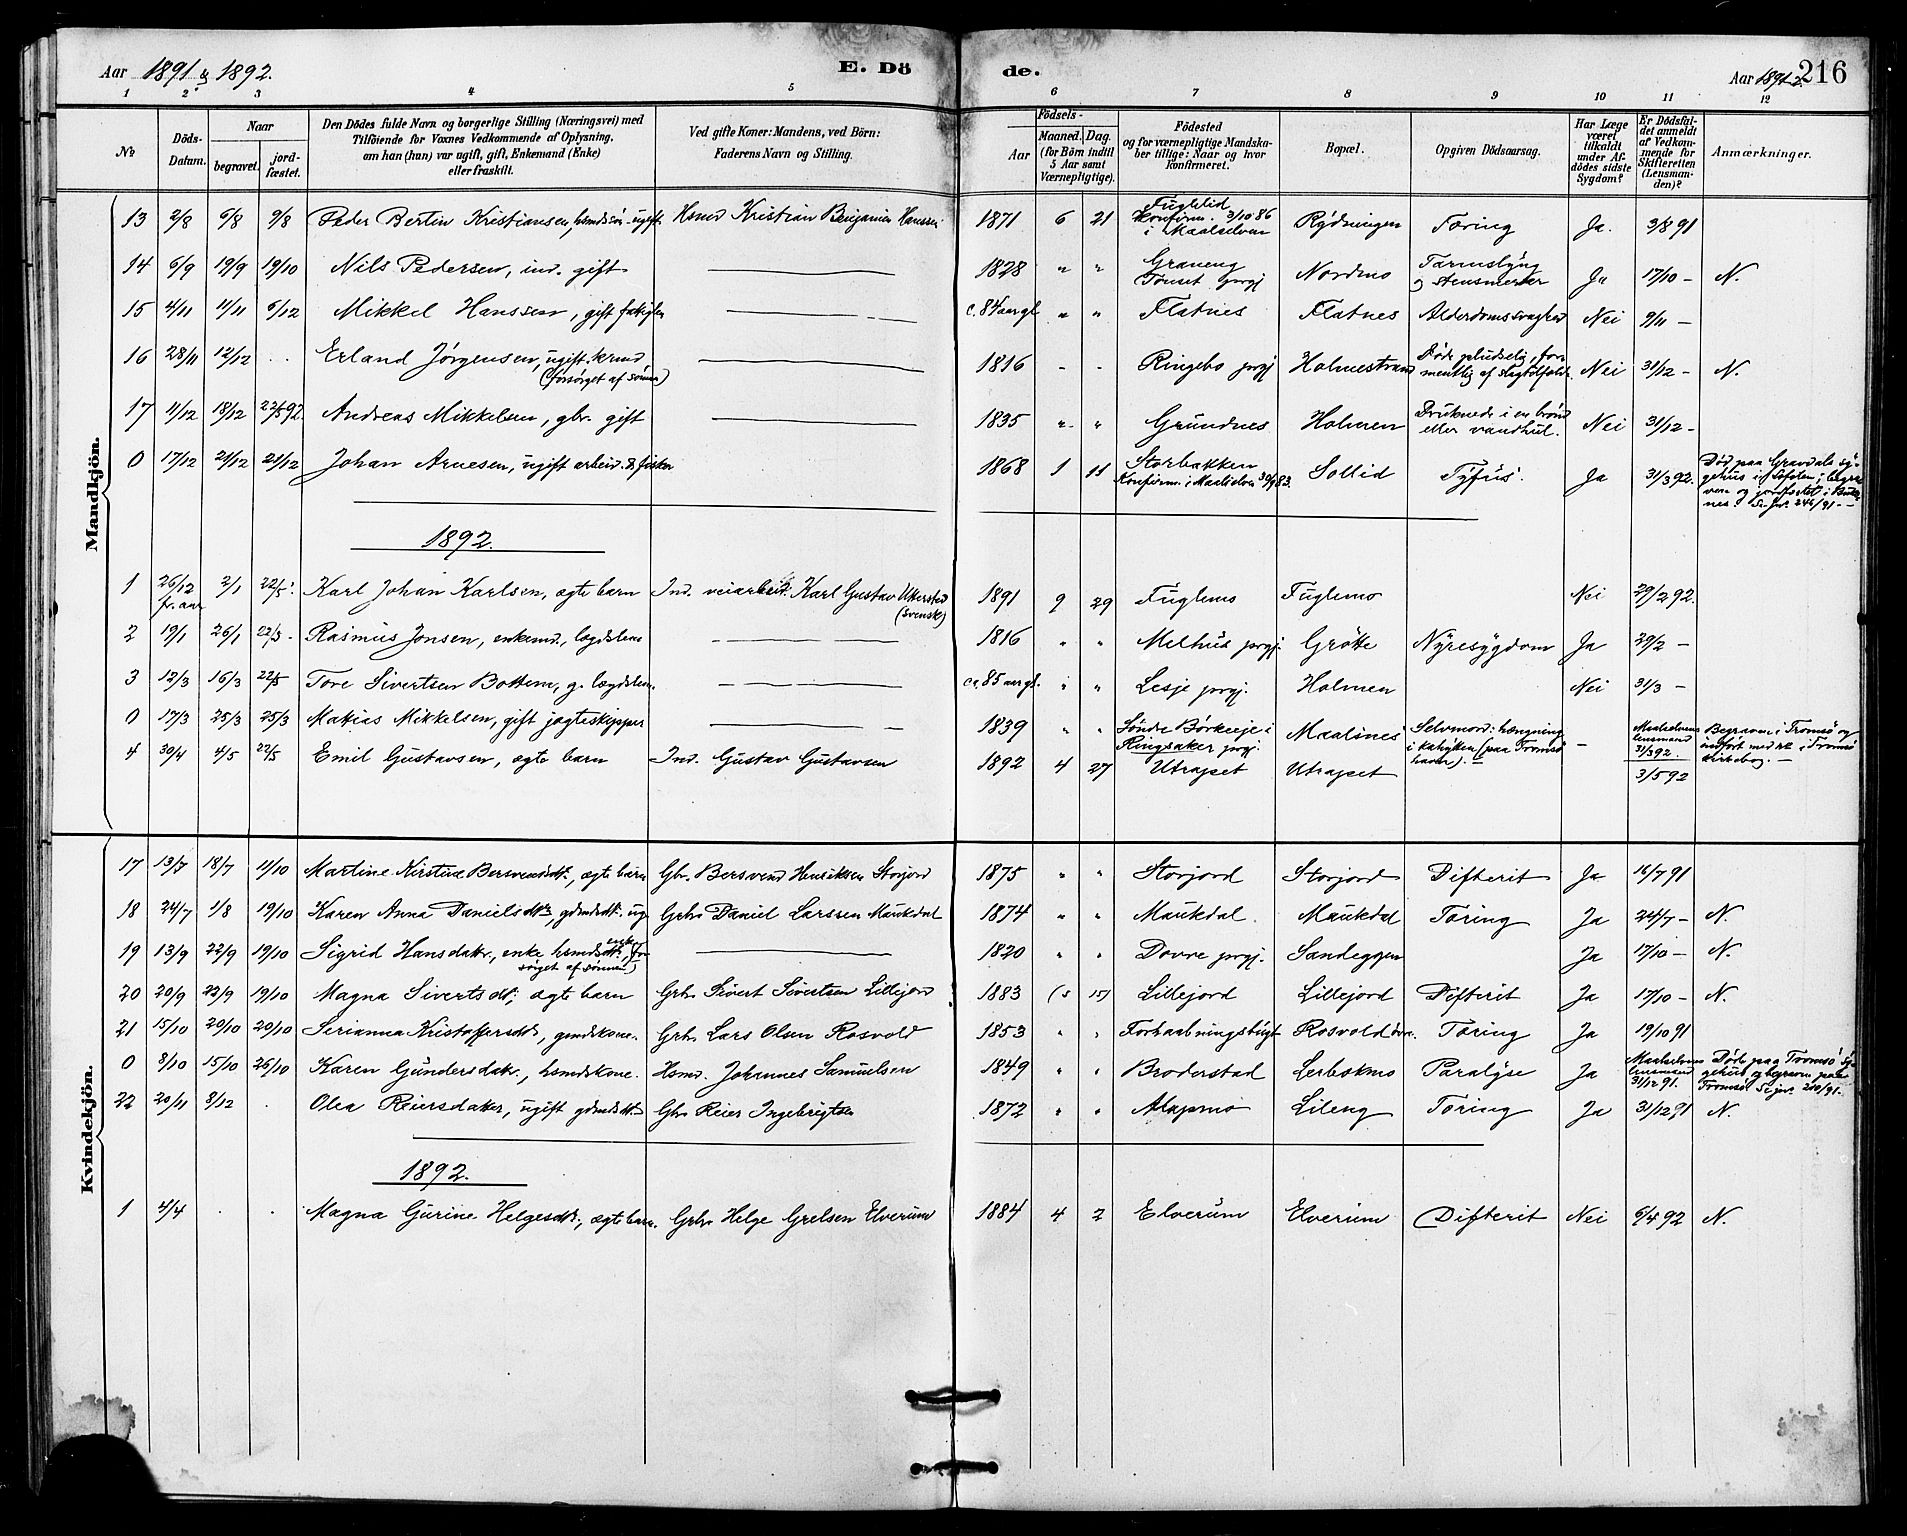 Aar 1891 & 1892. E. Dö de. Aar 1891-2. 216
1 2 3 4 5 6 7 8 9 10 11 12
No
Döds-Datum.
Naar
begravet.
jord-fæstet.
Den Dödes fulde Navn og borgerlige Stilling (Næringsvei) med
Tilföiende for Voxnes Vedkommende af Oplysning,
om han (hun) var ugift, gift, Enkemand (Enke)
eller fraskilt.
Ved gifte Koner: Mandens, ved Börn:
Faderens Navn og Stilling.
Födsels-
Aar
Maaned. Dag.
(for Börn indtil
5 Aar samt
Værnepligtige).
Födested
og for værnepligtige Mandska-
ber tillige: Naar og hvor
konfirmeret.
Bopæl.
Opgiven Dödsaarsag.
Har Læge
været
tilkaldt
under Af-
dödes sidste
Sygdom?
Er Dödsfal-
det anmeldt
af Vedkom-
mende for
Skifteretten
(Lensman-
den)?
Anmærkninger.
Mandkjön.
13 2/8 6/8 9/8 Peder Bertin Kristiansen, hsmdssøn ugift Hsmd Kristian Benjamin Hanssen 1871 6 21 Fuglelid Konfirm. 3/10 86 i Maalselven Rydningen Tæring Ja. 3/8 91
14 6/9 19/9 19/10 Nils Pedersen, ind. gift 1828 " " Graneng Tønset prgj Nordmo Tarmslyng og stensmerter Ja 17/10 - N.
15 4/11 11/11 6/12 Mikkel Hanssen, gift fattiglem c. 84 aar gl " " Flatnes Flatnes Alderdomssvaghed Nei 9/11 -
16 28/11 12/12 . . Erland Jørgensen, ugift (forsørget af sønnen) 1816 - - Ringebo prgj Holmestrand Døde pludselig, formentlig af slagtilfælde. Nei 31/12 - N.
17 11/12 18/12 22/5 92. Andreas Mikkelsen, gbr. gift 1835 " " Grundnes Holmen Druknede i en brønd eller vandhul. Nei 31/12 -
0 17/12 21/12 21/12 Johan Arnesen, ugift arbeid. & fisker 1868 1 11 Storbakken Konfirm. i Maalselven 30/9 83. Sollid Tyfus. Ja 31/3 92. Død paa Gravdals sygehus i Lofoten; begraven og jordfæstet i Buksnes. Se jor. 246/91 -
1892.
1 26/12 fr. aar 2/1 22/5. Karl Johan Karlsen, ægte barn Ind. veiarbeid. Karl Gustav (svensk) 1891 9 29 Fuglemo Fuglemo Nei 29/2 92.
2 19/1 26/1 22/5 - Rasmus Jonsen, enkemd., lægdslem 1816 " " Melhus prgj. Grøtte Nyresygdom Ja 29/2 -
3 12/3 16/3 22/5 Tore Sivertsen Bottem, g. lægdslem. ca. 85 aar gl. " " Lesje prgj. Holmen Nei 31/3 -
0 17/3 25/3 25/3 Matias Mikkelsen, gift jagteskipper 1839 " " Søndre Børkeeje i Ringsaker prgj. Maalsnes Selvmord: hængning i kahytten (paa Tromsø havn). - Maalselvens lensmand 31/3 92. Begraven i Tromsø og indført med no i Tromsø kirkebog. -
4 30/4 4/5 22/5 Emil Gustavsen, ægte barn Ind. Gustav Gustavsen 1892 4 27 Utrapet Utrapet 3/5 92
Kvindekjön.
17 13/7 18/7 11/10 Martine Kirstine Bersvendsdtr., ægte barn Gbr. Bersvend Henriksen Storjord 1875 " " Storjord Storjord Difterit Ja 16/7 91
18 24/7 1/8 19/10 Karen Anna Danielsdtr, gdmdsdtr. ug. Grbr Daniel Larssen Maukdal 1874 " " Maukdal. Maukdal Tæring Ja 24/7 - N.
19 13/9 22/9 19/10 Sigrid Hansdatr., enke hsmdsenke, (forsørget af sønnen) 1820 " " Dovre prgj. Sandeggen Ja 17/10 - N.
20 20/9 22/9 19/10 Magna Sivertsdtr; ægte barn Grbr Sivert Sivertsen Lillejord 1883 (5 15) Lillejord Lillejord Difterit Ja 17/10 - N.
21 15/10 20/10 20/10 Serianna Kristoffersdtr, gmdskone. Grbr Lars Olsen Rosvold 1853 " " Forhaabningsbugt Rosvold øvre. Tæring Ja 19/10 91
0 8/10 15/10 26/10 Karen Gundersdatr., hsmdskone. Hsmd. Johannes Samuelsen 1849 " " Broderstad Lerbskmo Paralyse Ja Maalselvens lensmand 31/12 91. Døde paa Tromsø sygehus og begraven paa Tromsø. Se jor. 200/91.
22 20/11 8/12 . Olea Reiersdatter, ugift gdmdsdtr Gbr Reier Ingebrigtsen 1872 " " Alapmo Lileng Tæring Ja 31/12 91 N.
1892.
1 4/4 . . Magna Gurine Helgesdtr., ægte barn. Grbr Helge Grelsen Elverum 1884 4 2 Elverum Elverum Difterit Nei 6/4 92 N.